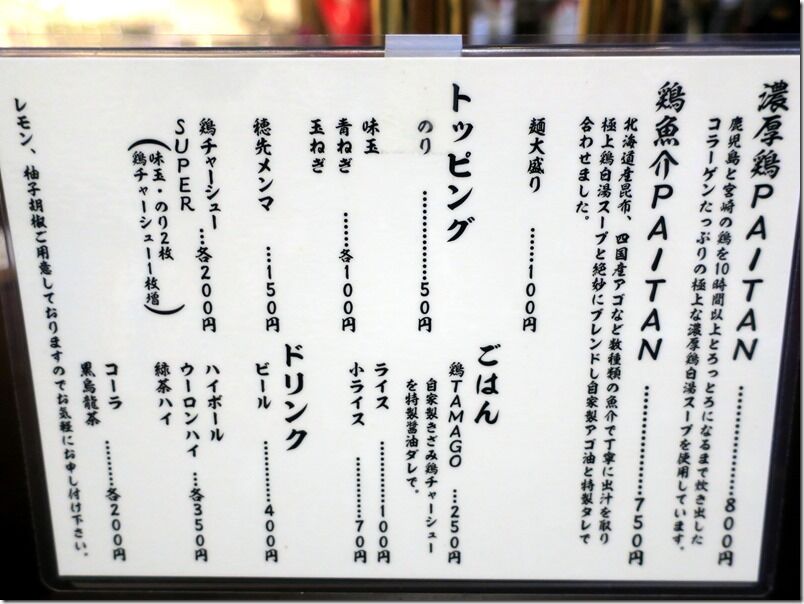 濃厚鶏PAITAN…………800円
鹿児島と宮崎の鶏を10時間以上とろっとろになるまで炊き出した
コラーゲンたっぷりの極上な濃厚鶏白湯スープを使用しています。
鶏魚介PAITAN…………750円
北海道産昆布、四国産アゴなど数種類の魚介で丁寧に出汁を取り
極上鶏白湯スープと絶妙にブレンドし自家製アゴ油と特製タレで
合わせました。
麺大盛り………100円
トッピング
のり……………50円
味玉
青ねぎ
玉ねぎ………各100円
穂先メンマ…150円
鶏チャーシュー…各200円
SUPER
(味玉・のり2枚
鶏チャーシュー1枚増)
ごはん
鶏TAMAGO…250円
自家製きざみ鶏チャーシュー
を特製醤油ダレで。
ライス…………100円
小ライス…………70円
ドリンク
ビール…………400円
ハイボール
ウーロンハイ…各350円
緑茶ハイ
コーラ………各200円
黒烏龍茶
レモン、柚子胡椒ご用意しておりますのでお気軽にお申し付け下さい。